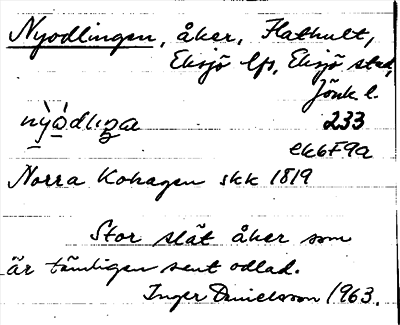 Nyodlingen, åker, Flathult,
Eksjö lfs, Eksjö stad,
Jönk l.
nỳòdlıŋa 233
ek6F9a
Norra Kohagen skk 1819
Stor slät åker som
är tämligen sent odlad.
Inger Danielsson 1963.